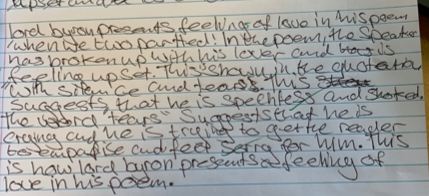 lord byron presents feeling of love in his poem
when we two parrted! In the poem, the speaker
has broken up with his lover and is
feeling upset. This shown in the quotation
"with silence and tears". This
suggests that he is spechless and shoked.
The word "tears" suggests that he is
craing and he is traing to get the reader
to empafise and feel sorra for him. This
is how lord byron presents a feeling of
love in his poem.